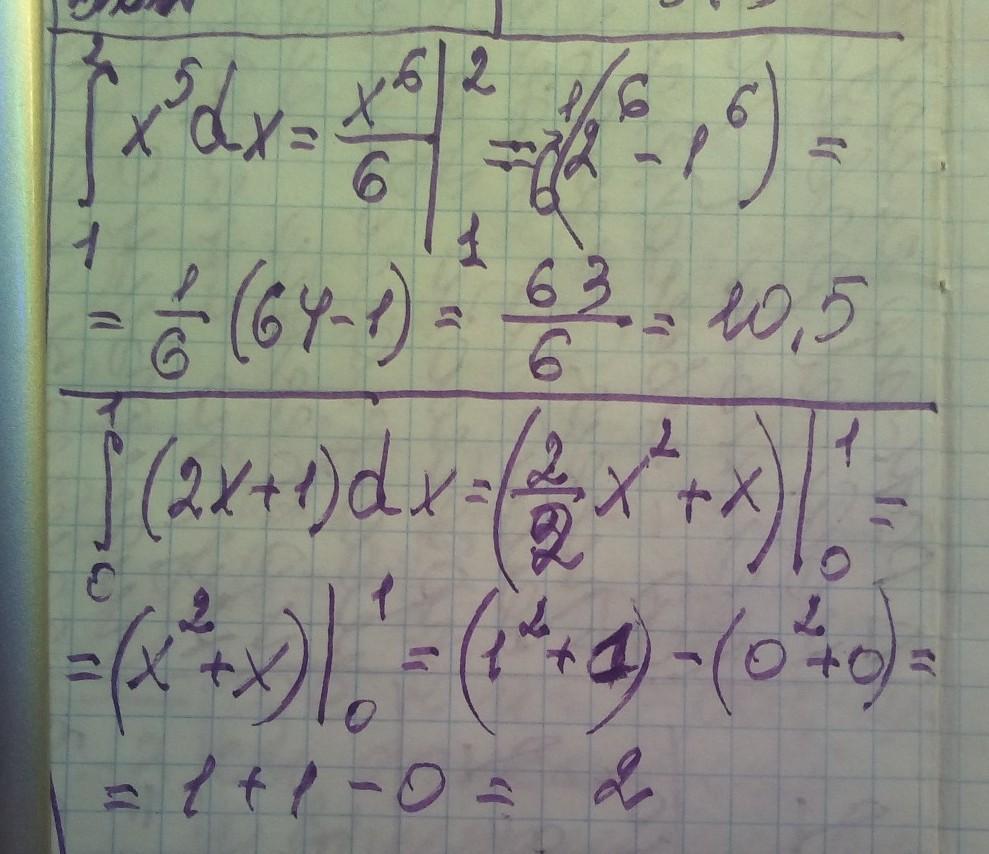 ∫₁² x⁵dx = x⁶/6 |₁² = 1/6(2⁶ - 1⁶) =
= 1/6 (64-1) = 63/6 = 10,5
∫₀¹ (2x+1)dx = (2/2 x² + x)|₀¹ =
= (x² + x)|₀¹ = (1² + 1) - (0² + 0) =
= 1 + 1 - 0 = 2